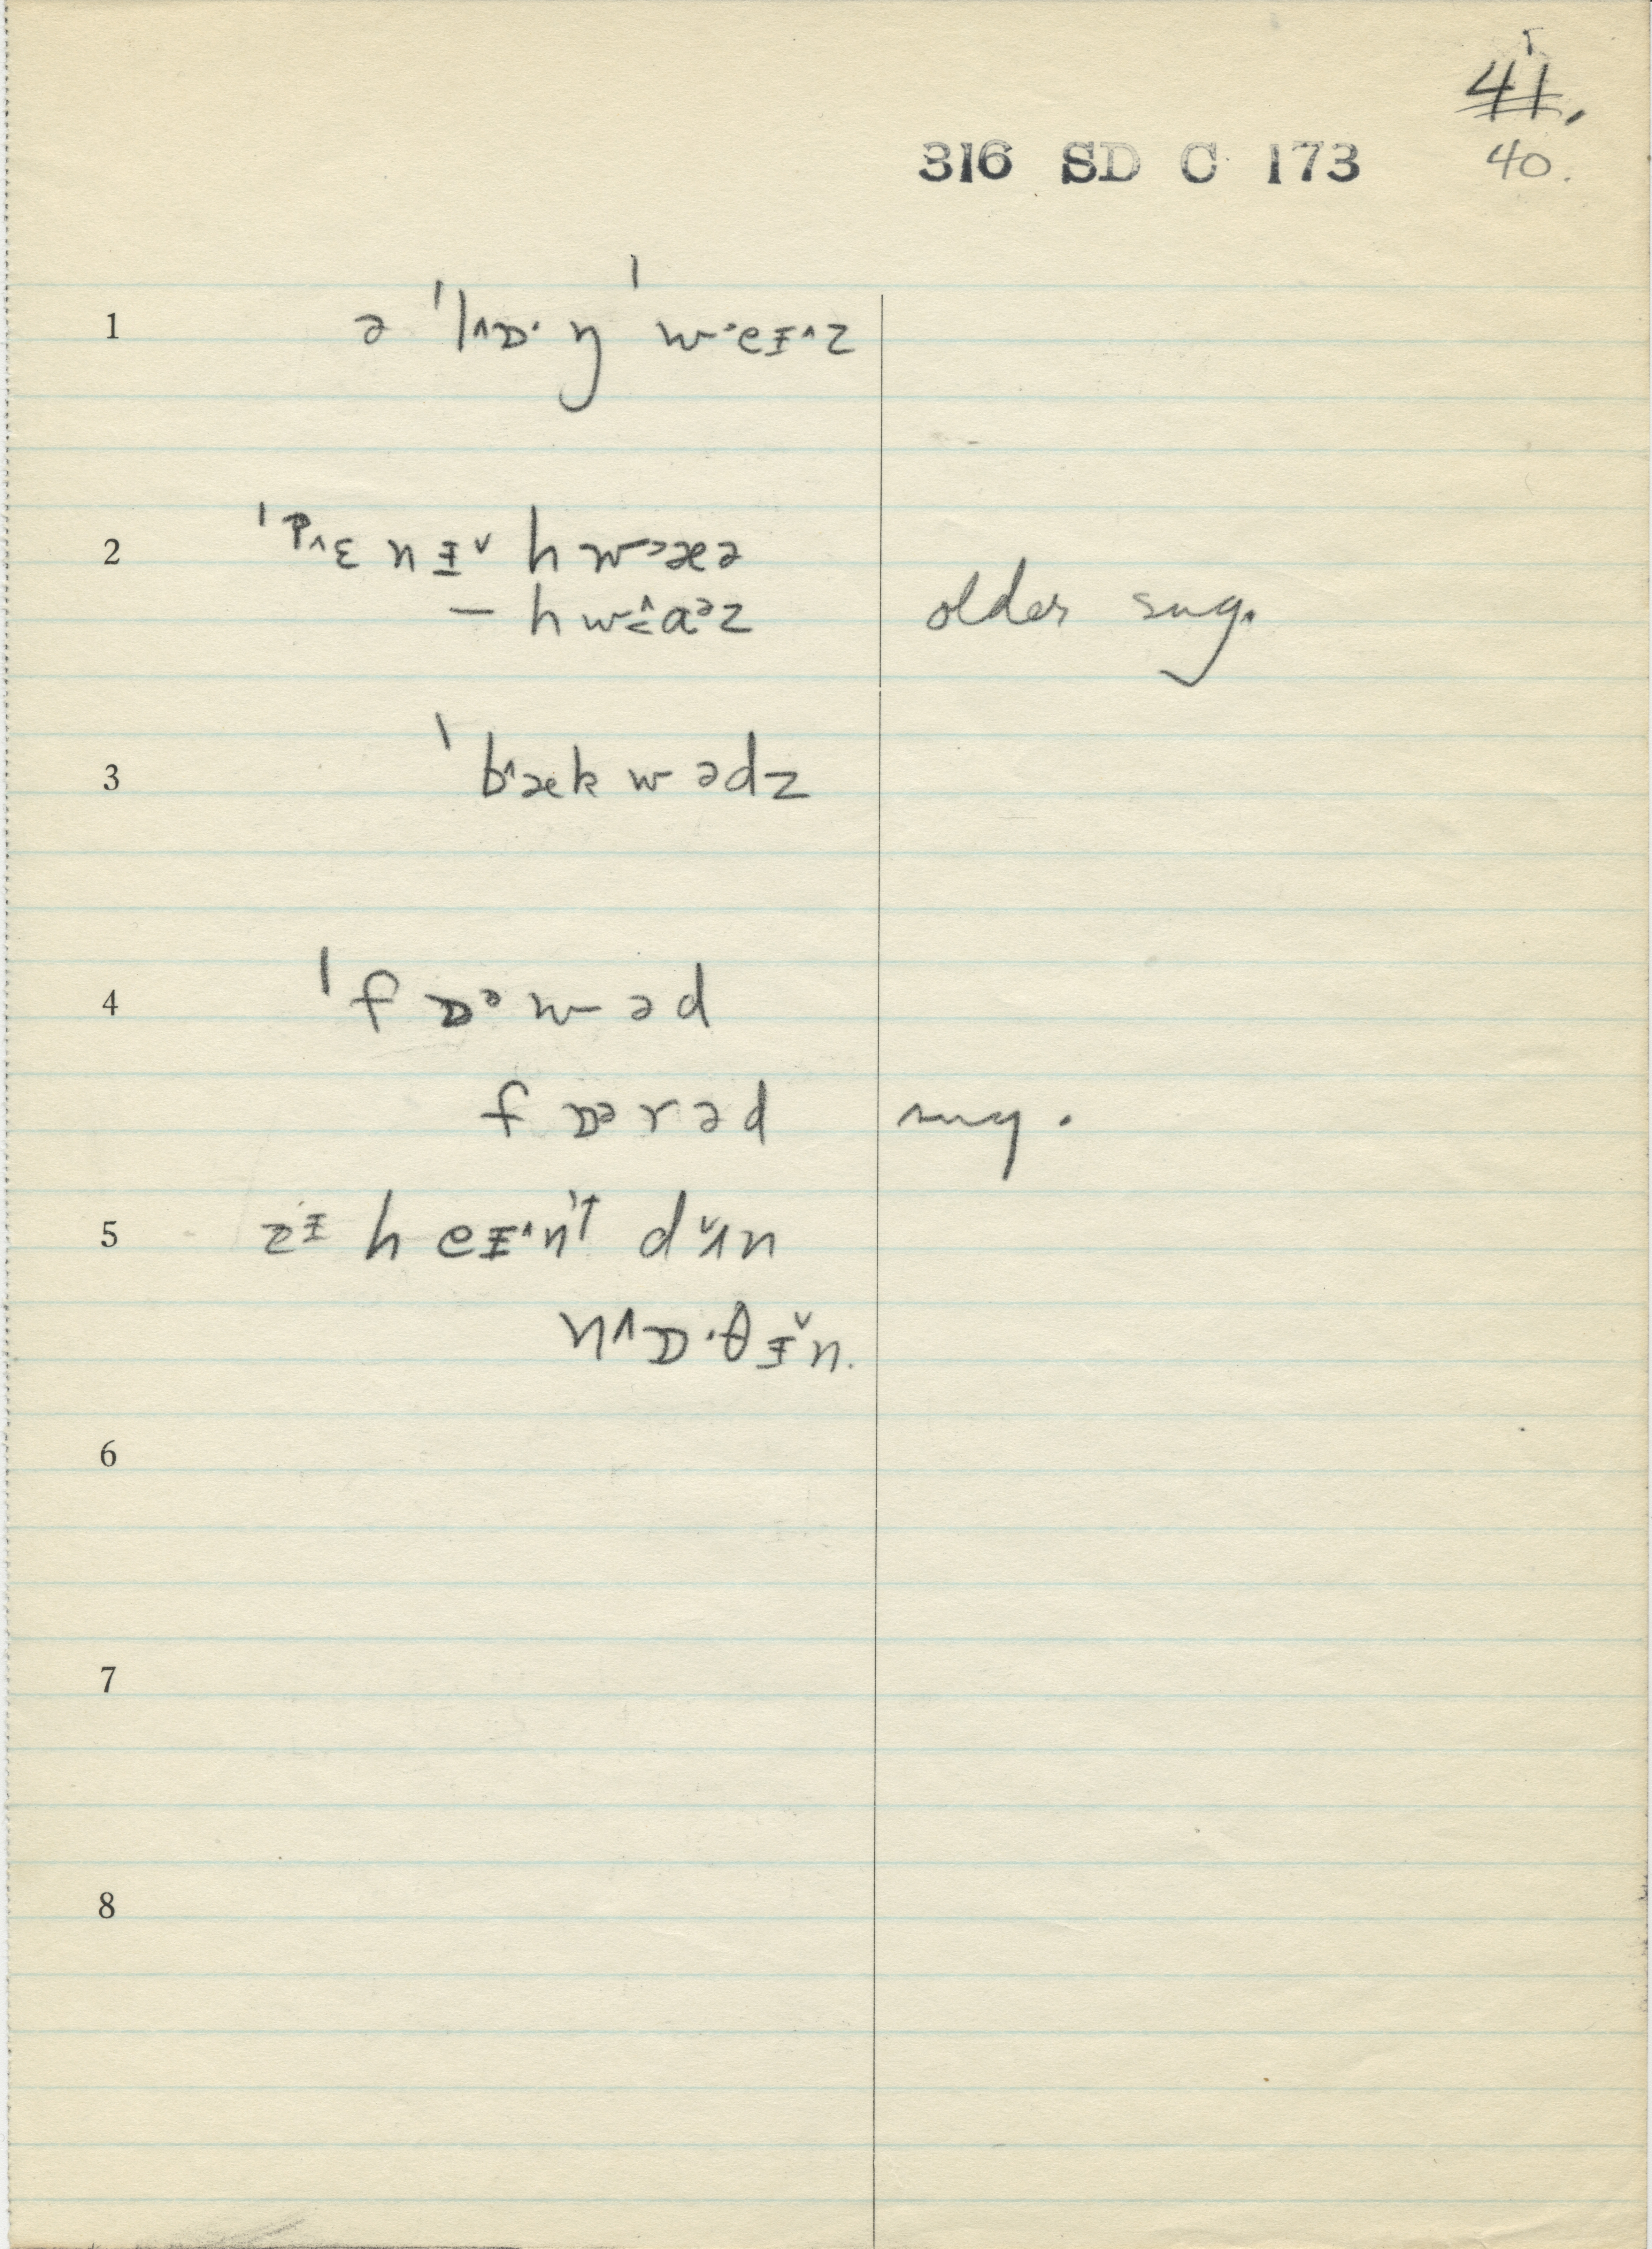 41.
316 SD C 173 40.
1 ə ˈl^ɒ·ŋ ˈw·eɪ^z
2 ˈp^ɛnɪˇ hw>æə
– hw<^aᵊz older sug.
3 ˈb^ækwədz
4 ˈfɒᵊwəd
fɒᵊrəd sug.
5 zɪ heɪ^n't dʌˇn
n^ɒ·θɪˇn.
6
7
8